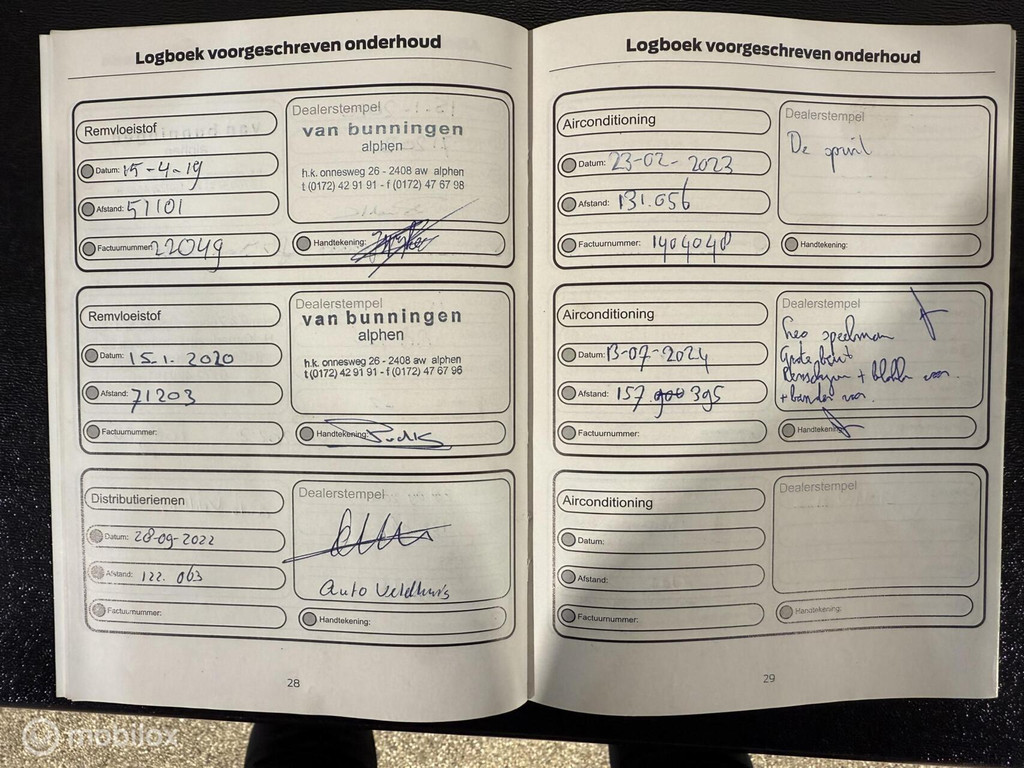 Logboek voorgeschreven onderhoud
Remvloeistof
Datum: 15-4-19
Afstand: 51101
Factuurnummer: 22049
Dealerstempel
van bunningen
alphen
h.k. onnesweg 26 - 2408 aw alphen
t (0172) 42 91 91 - f (0172) 47 67 98
Handtekening:
Remvloeistof
Datum: 15.1. 2020
Afstand: 71203
Factuurnummer:
Dealerstempel
van bunningen
alphen
h.k. onnesweg 26 - 2408 aw alphen
t (0172) 42 91 91 - f (0172) 47 67 96
Handtekening:
Distributieriemen
Datum: 28-09-2022
Afstand: 122. 063
Factuurnummer:
Dealerstempel
Auto Veldhuis
Handtekening:
28
Logboek voorgeschreven onderhoud
Airconditioning
Datum: 23-02-2023
Afstand: 131.056
Factuurnummer: 1404048
Dealerstempel
De
Handtekening:
Airconditioning
Datum: 13-07-2024
Afstand: 157.900 395
Factuurnummer:
Dealerstempel
Leo speelman
Grote beurt
Remschijven + blokken voor
+ banden voor.
Handtekening:
Airconditioning
Datum:
Afstand:
Factuurnummer:
Dealerstempel
Handtekening:
29
mobilox